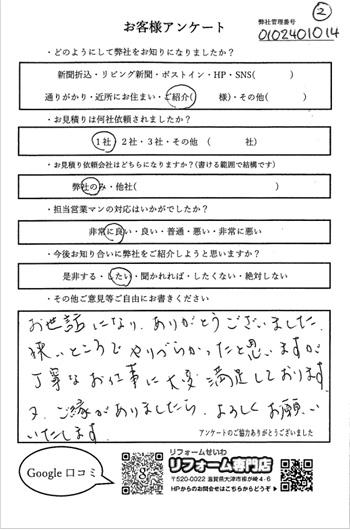 ②
お客様アンケート
弊社管理番号
0102401014
・どのようにして弊社をお知りになりましたか？
新聞折込・リビング新聞・ポストイン・HP・SNS(　　　)
通りがかり・近所にお住まい・ご紹介(　　　様)・その他(　　　)
・お見積りは何社依頼されましたか？
1社・2社・3社・その他　(　　　社)
・お見積り依頼会社はどちらになりますか？(書ける範囲で結構です)
弊社のみ・他社(　　　)
・担当営業マンの対応はいかがでしたか？
非常に良い・良い・普通・悪い・非常に悪い
・今後お知り合いに弊社をご紹介しようと思いますか？
是非する・したい・聞かれれば・したくない・絶対しない
・その他ご意見等ご自由にお書きください
お世話になり、ありがとうございました。
狭いところでやりづらかったと思いますが
丁寧なお仕事に大変満足しております
又、ご縁がありましたら、よろしくお願い
いたします
アンケートのご協力ありがとうございました
Google 口コミ
リフォームせいわ
リフォーム専門店
〒520-0022 滋賀県大津市柳が崎4-6
HPからのお問合せはこちらからどうぞ